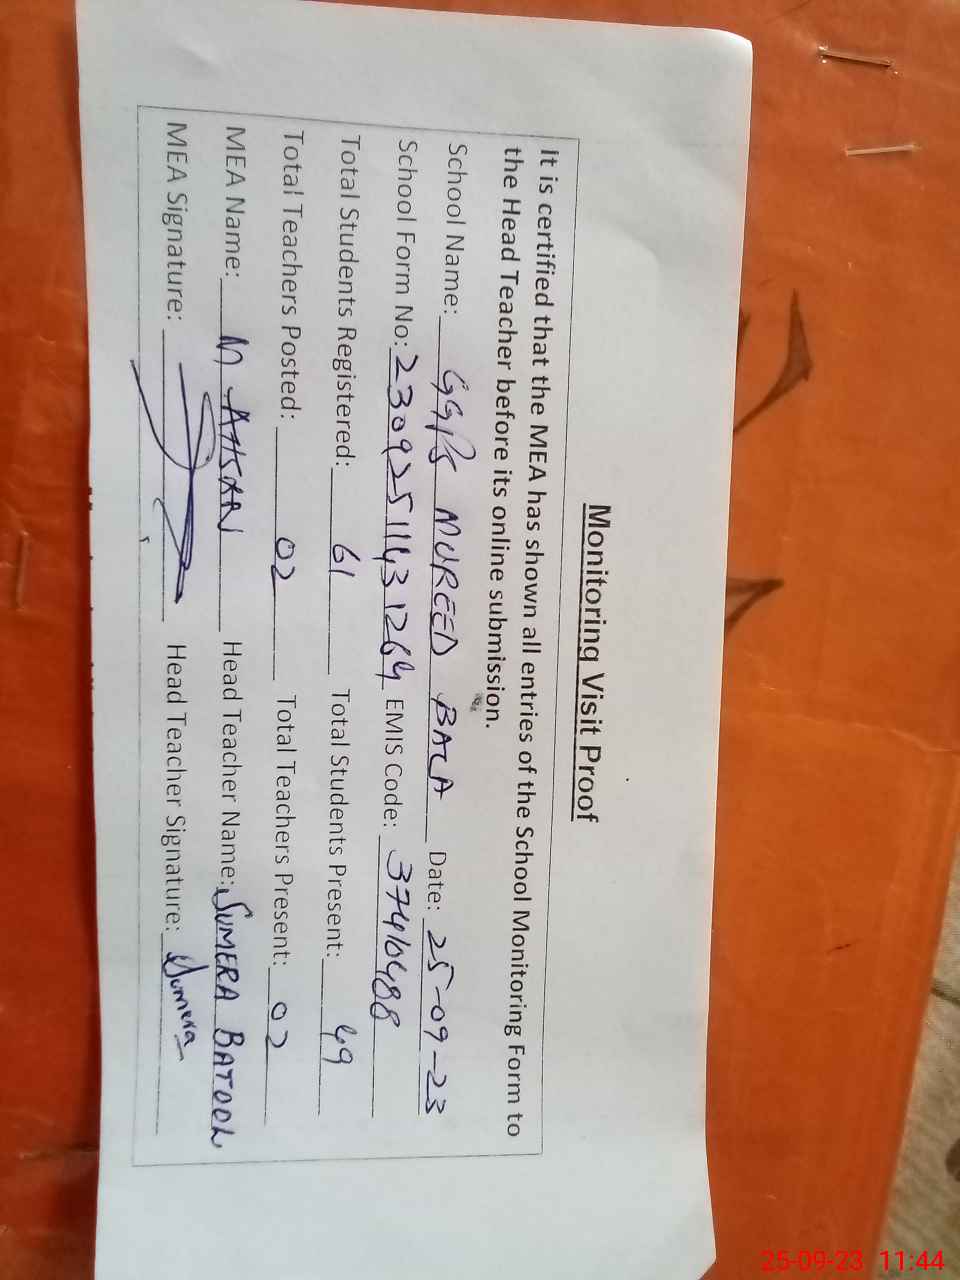 Monitoring Visit Proof
It is certified that the MEA has shown all entries of the School Monitoring Form to
the Head Teacher before its online submission.
School Name: GGPS MUREED BALA Date: 25-09-23
School Form No: 23092511431264 EMIS Code: 37410488
Total Students Registered: 61 Total Students Present: 49
Total Teachers Posted: 02 Total Teachers Present: 02
MEA Name: M AHSAN Head Teacher Name: SUMERA BATOOL
MEA Signature: Head Teacher Signature: Sumera
25-09-23 11:44